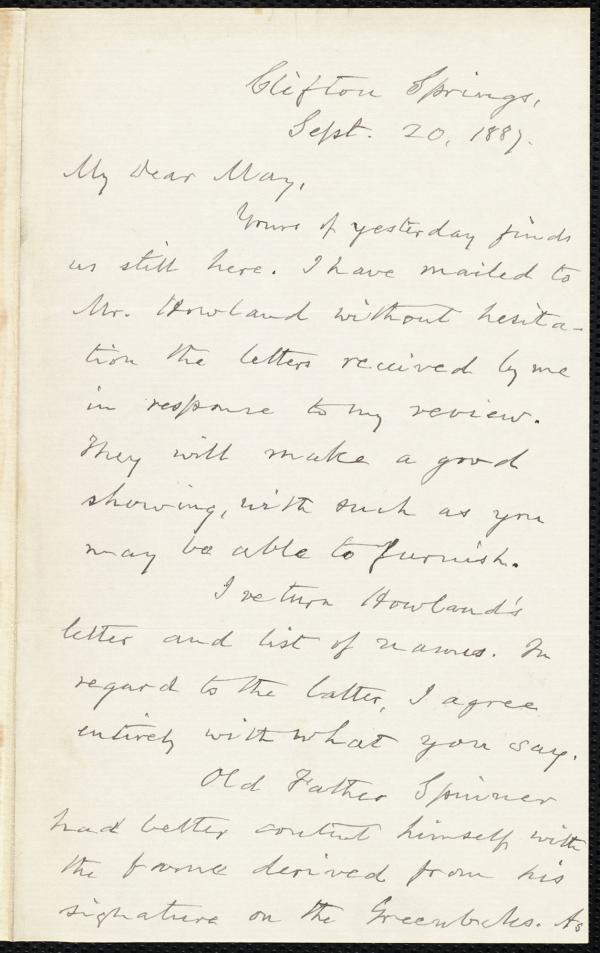 Clifton Springs,
Sept. 20, 1887.
My Dear May,
Yours of yesterday finds
us still here. I have mailed to
Mr. Howland without hesita-
tion the letters received by me
in response to my review.
They will make a good
showing, with such as you
may be able to furnish.
I return Howland's
letter and list of names. In
regard to the latter, I agree
entirely with what you say.
Old Father Spinner
had better content himself with
the fame derived from his
signature on the Greenbacks. As